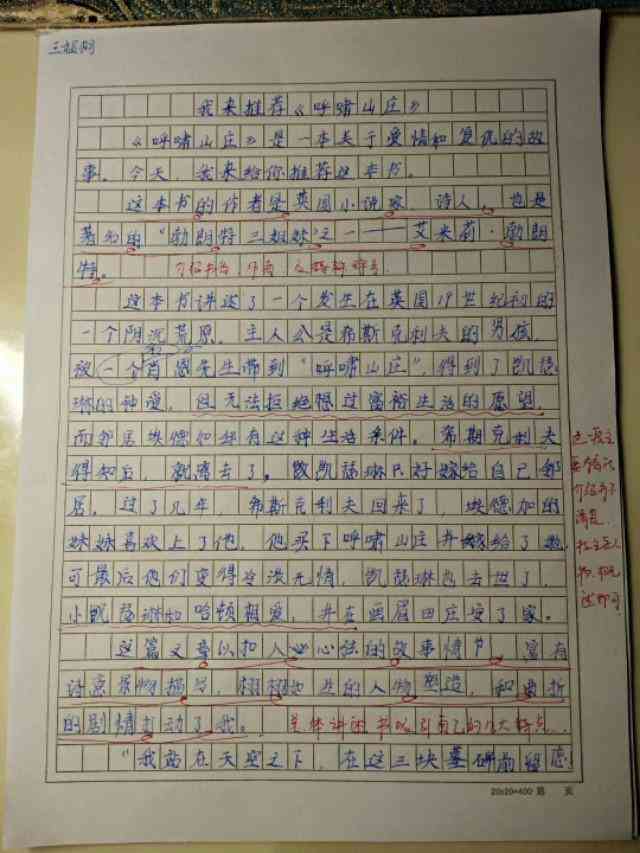 我来推荐《呼啸山庄》
《呼啸山庄》是一本关于爱情和复仇的故
事。今天，我来给你推荐这本书。
这本书的作者是英国小说家、诗人，也是
著名的“勃朗特三姐妹”之一——艾米莉·勃朗
特。
这本书讲述了一个发生在英国19世纪初的
一个阴沉荒原。主人公是希斯克利夫的男孩，
被一个肖恩先生带到“呼啸山庄”，得到了凯瑟
琳的钟爱，但无法拒绝想过富裕生活的愿望，
而邻居埃德加却有这种生活条件。希斯克利夫
得知后，就离去了。凯瑟琳只好嫁给自己邻
居。过了几年，希斯克利夫回来了，埃德加的
妹妹喜欢上了他，他买下呼啸山庄并嫁给了她
可最后他们变得冷漠无情，凯瑟琳也去世了，
小凯瑟琳和哈顿相爱，并在画眉田庄安了家。
这篇文章以扣人心弦的故事情节、富有
诗意景物描写、栩栩如生的人物塑造，和曲折
的剧情打动了我。
“我站在天空之下，在这三块墓碑前留恋
20x20=400 第 页